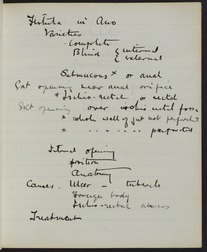 Fistula in Ano
Varieties
Complete
Blind { internal
external
Submucous x or anal
Ext opening near anal orifice
+ Ischio-rectal or rectal
Ext opening over ischio rectal fossa
x whole wall of gut not perforated
+ " " " " perforated
Internal opening
position
Anatomy
Causes. Ulcer - tubercle
Foreign body
Ischio-rectal abscess
Treatment